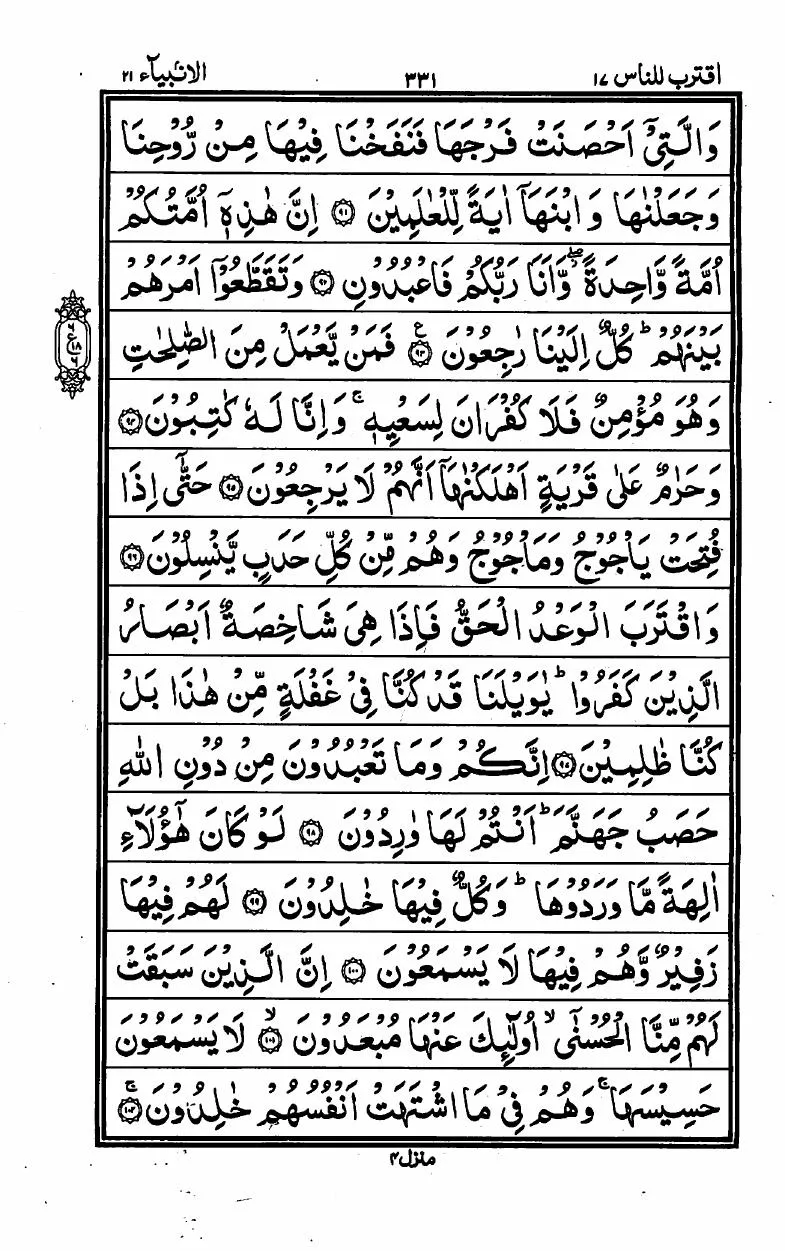 اقترب للناس ۱۷ ۳۳۱ الانۢبیآء ۲۱
وَالَّتِیْۤ اَحْصَنَتْ فَرْجَهَا فَنَفَخْنَا فِیْهَا مِنْ رُّوْحِنَا
وَجَعَلْنٰهَا وَابْنَهَاۤ اٰیَةً لِّلْعٰلَمِیْنَ ﴿۹۱﴾ اِنَّ هٰذِهٖۤ اُمَّتُكُمْ
اُمَّةً وَّاحِدَةً ۖ٘ وَّاَنَا رَبُّكُمْ فَاعْبُدُوْنِ ﴿۹۲﴾ وَتَقَطَّعُوْۤا اَمْرَهُمْ
بَیْنَهُمْ ؕ كُلٌّ اِلَیْنَا رٰجِعُوْنَ ﴿۹۳﴾ ع فَمَنْ یَّعْمَلْ مِنَ الصّٰلِحٰتِ
وَهُوَ مُؤْمِنٌ فَلَا كُفْرَانَ لِسَعْیِهٖ ۚ وَاِنَّا لَهٗ كٰتِبُوْنَ ﴿۹۴﴾
وَحَرٰمٌ عَلٰی قَرْیَةٍ اَهْلَكْنٰهَاۤ اَنَّهُمْ لَا یَرْجِعُوْنَ ﴿۹۵﴾ حَتّٰۤی اِذَا
فُتِحَتْ یَاْجُوْجُ وَمَاْجُوْجُ وَهُمْ مِّنْ كُلِّ حَدَبٍ یَّنْسِلُوْنَ ﴿۹۶﴾
وَاقْتَرَبَ الْوَعْدُ الْحَقُّ فَاِذَا هِیَ شَاخِصَةٌ اَبْصَارُ
الَّذِیْنَ كَفَرُوْا ؕ یٰوَیْلَنَا قَدْ كُنَّا فِیْ غَفْلَةٍ مِّنْ هٰذَا بَلْ
كُنَّا ظٰلِمِیْنَ ﴿۹۷﴾ اِنَّكُمْ وَمَا تَعْبُدُوْنَ مِنْ دُوْنِ اللّٰهِ
حَصَبُ جَهَنَّمَ ؕ اَنْتُمْ لَهَا وٰرِدُوْنَ ﴿۹۸﴾ لَوْ كَانَ هٰۤؤُلَآءِ
اٰلِهَةً مَّا وَرَدُوْهَا ؕ وَكُلٌّ فِیْهَا خٰلِدُوْنَ ﴿۹۹﴾ لَهُمْ فِیْهَا
زَفِیْرٌ وَّهُمْ فِیْهَا لَا یَسْمَعُوْنَ ﴿۱۰۰﴾ اِنَّ الَّذِیْنَ سَبَقَتْ
لَهُمْ مِّنَّا الْحُسْنٰۤی ۙ اُولٰٓئِكَ عَنْهَا مُبْعَدُوْنَ ﴿۱۰۱﴾ ۙ لَا یَسْمَعُوْنَ
حَسِیْسَهَا ۚ وَهُمْ فِیْ مَا اشْتَهَتْ اَنْفُسُهُمْ خٰلِدُوْنَ ﴿۱۰۲﴾ ۚ
منزل ۴